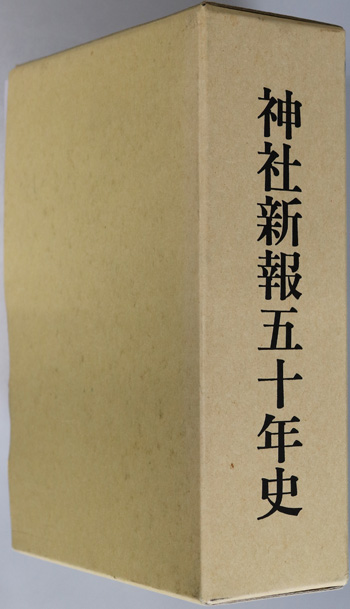 神社新報五十年史